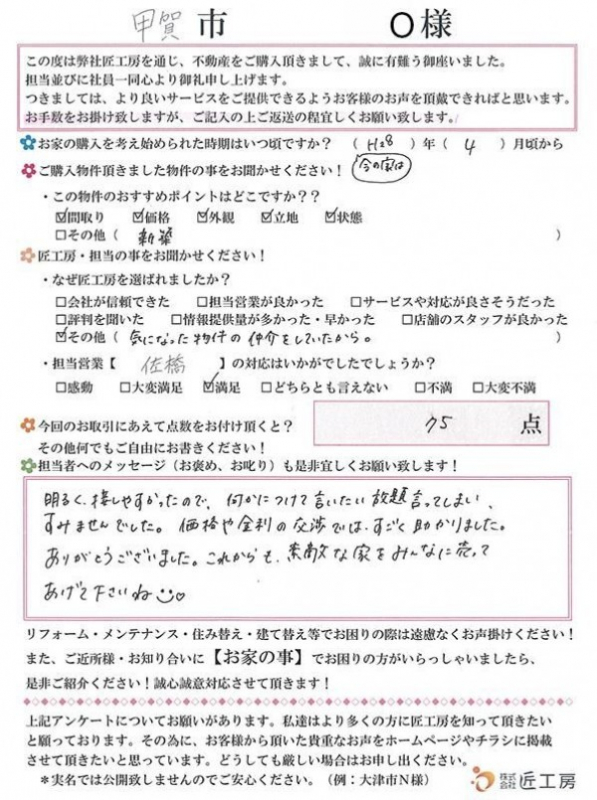 甲賀市 O様
この度は弊社匠工房を通じ、不動産をご購入頂きまして、誠に有難う御座いました。
担当並びに社員一同心より御礼申し上げます。
つきましては、より良いサービスをご提供できるようお客様のお声を頂戴できればと思います。
お手数をお掛け致しますが、ご記入の上ご返送の程宜しくお願い致します。
お家の購入を考え始められた時期はいつ頃ですか？（H28）年（4）月頃から
ご購入物件頂きました物件の事をお聞かせください！ 今の家は
・この物件のおすすめポイントはどこですか？？
☑間取り ☑価格 ☑外観 ☑立地 ☑状態
□その他（ 新築 ）
匠工房・担当の事をお聞かせください！
・なぜ匠工房を選ばれましたか？
□会社が信頼できた □担当営業が良かった □サービスや対応が良さそうだった
□評判を聞いた □情報提供量が多かった・早かった □店舗のスタッフが良かった
☑その他（ 気になった物件の仲介をしていたから。 ）
・担当営業【 佐橋 】の対応はいかがでしたでしょうか？
□感動 □大変満足 ☑満足 □どちらとも言えない □不満 □大変不満
今回のお取引にあえて点数をお付け頂くと？ 75 点
その他何でもご自由にお書きください！
担当者へのメッセージ（お褒め、お叱り）も是非宜しくお願い致します！
明るく、接しやすかったので、何かにつけて言いたい放題言ってしまい、
すみませんでした。価格や金利の交渉では、すごく助かりました。
ありがとうございました。これからも、素敵な家をみんなに売って
あげて下さいね
リフォーム・メンテナンス・住み替え・建て替え等でお困りの際は遠慮なくお声掛けください！
また、ご近所様・お知り合いに【お家の事】でお困りの方がいらっしゃいましたら、
是非ご紹介ください！誠心誠意対応させて頂きます！
上記アンケートについてお願いがあります。私達はより多くの方に匠工房を知って頂きたい
と願っております。その為に、お客様から頂いた貴重なお声をホームページやチラシに掲載
させて頂きたいと思っています。どうしても厳しい場合はお申し出ください。
＊実名では公開致しませんのでご安心ください。（例：大津市N様） 株式会社 匠工房